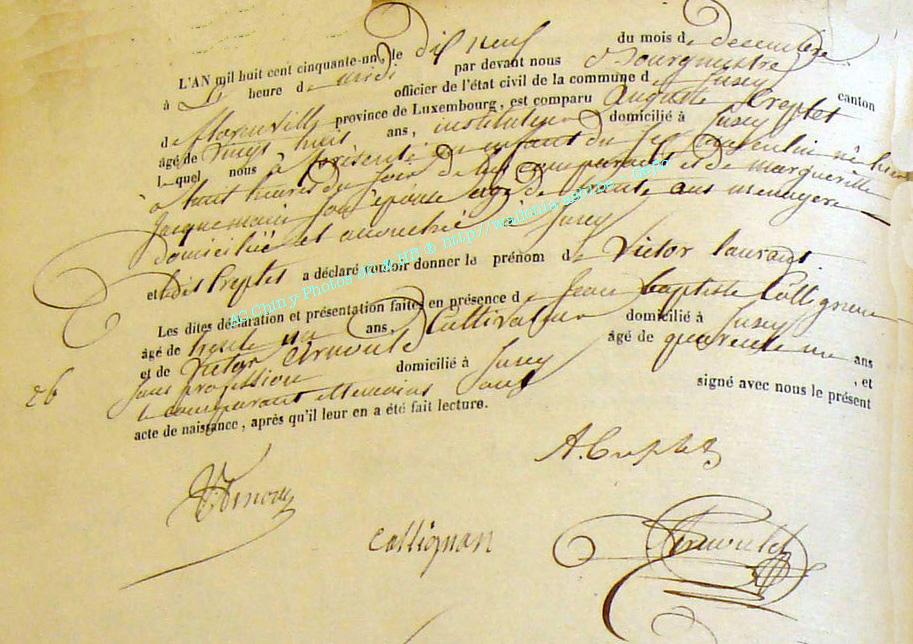 L'AN mil huit cent cinquante-un, le dix neuf du mois de decembre
à heure de midi par devant nous Bourgmestre
officier de l'état civil de la commune de Jusey canton
de Florenville province de Luxembourg, est comparu Auguste Creplet
âgé de vingt huit ans, instituteur domicilié à Jusey
lequel nous a présenté un enfant du sexe masculin né hier
à huit heures du soir de lui comparant et de marguerite
Jacquemain son épouse agée de trente ans menagere
domiciliée et accouchée à Jusey
et dit Creplet a déclaré vouloir donner le prénom de Victor Laurent
Les dites déclaration et présentation faites en présence de Jean Baptiste Collignon
âgé de trente un ans Cultivateur domicilié à Jusey
et de Victor Arnould âgé de quarante un ans
sans profession domicilié à Jusey , et
26 comparant et temoins ont signé avec nous le présent
acte de naissance, après qu'il leur en a été fait lecture.
A. Creplet
Collignon
Arnould
AC Chiny Photos JC & HB @ http://wallonia-asbl.be